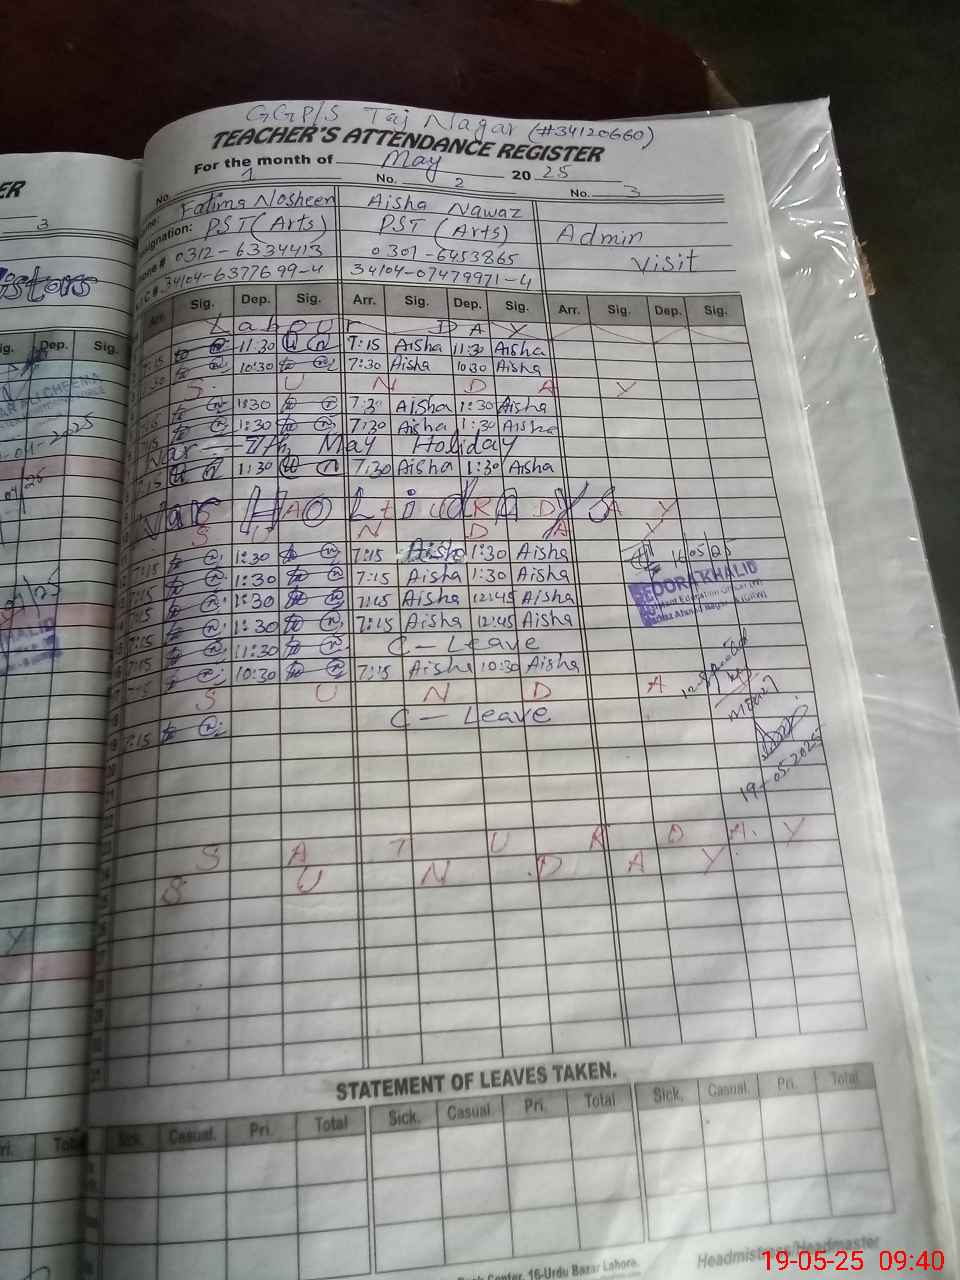 GGP/S Taj Nagar (#34120660)
TEACHER'S ATTENDANCE REGISTER
For the month of May 2025
No. 1 No. 2 No. 3
Fatima Nosheen Aisha Nawaz
PST (Arts) PST (Arts) Admin
0312-6334413 0301-6453865 Visit
34104-6377699-4 34104-07479971-4
Arr. Sig. Dep. Sig. Arr. Sig. Dep. Sig. Arr. Sig. Dep. Sig.
Labour DAY
7:15 11:30 7:15 Aisha 11:30 Aisha
10:30 7:30 Aisha 10:30 Aisha
S U N D A Y
1:30 7:30 Aisha 1:30 Aisha
7:15 1:30 7:30 Aisha 1:30 Aisha
War 7th May Holiday
1:30 7:30 Aisha 1:30 Aisha
War HoLidAys
S U N D A Y
7:15 1:30 7:15 Aisha 1:30 Aisha 16/05/25
7:15 1:30 7:15 Aisha 1:30 Aisha
7:15 1:30 7:15 Aisha 12:45 Aisha
7:15 1:30 7:15 Aisha 12:45 Aisha
7:15 11:30 C - Leave
7:15 10:30 7:15 Aisha 10:30 Aisha
S U N D A
7:15 C - Leave
19-05-2025
S A T U R D A Y
S U N D A Y
STATEMENT OF LEAVES TAKEN.
Sick. Casual. Pri. Total Sick. Casual Pri. Total Sick. Casual. Pri. Total
Headmistress/Headmaster
Center, 16-Urdu Bazar Lahore.
ER
3
Sig. Dep. Sig.
19-05-25 09:40